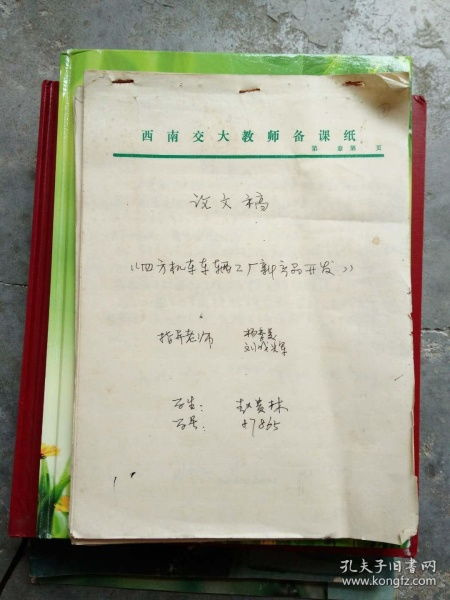 西南交大教师备课纸
第 章第 页
论文稿
《四方机车车辆工厂新产品开发》
指导老师
学生:
学号: 87865
孔夫子旧书网
www.kongfz.com